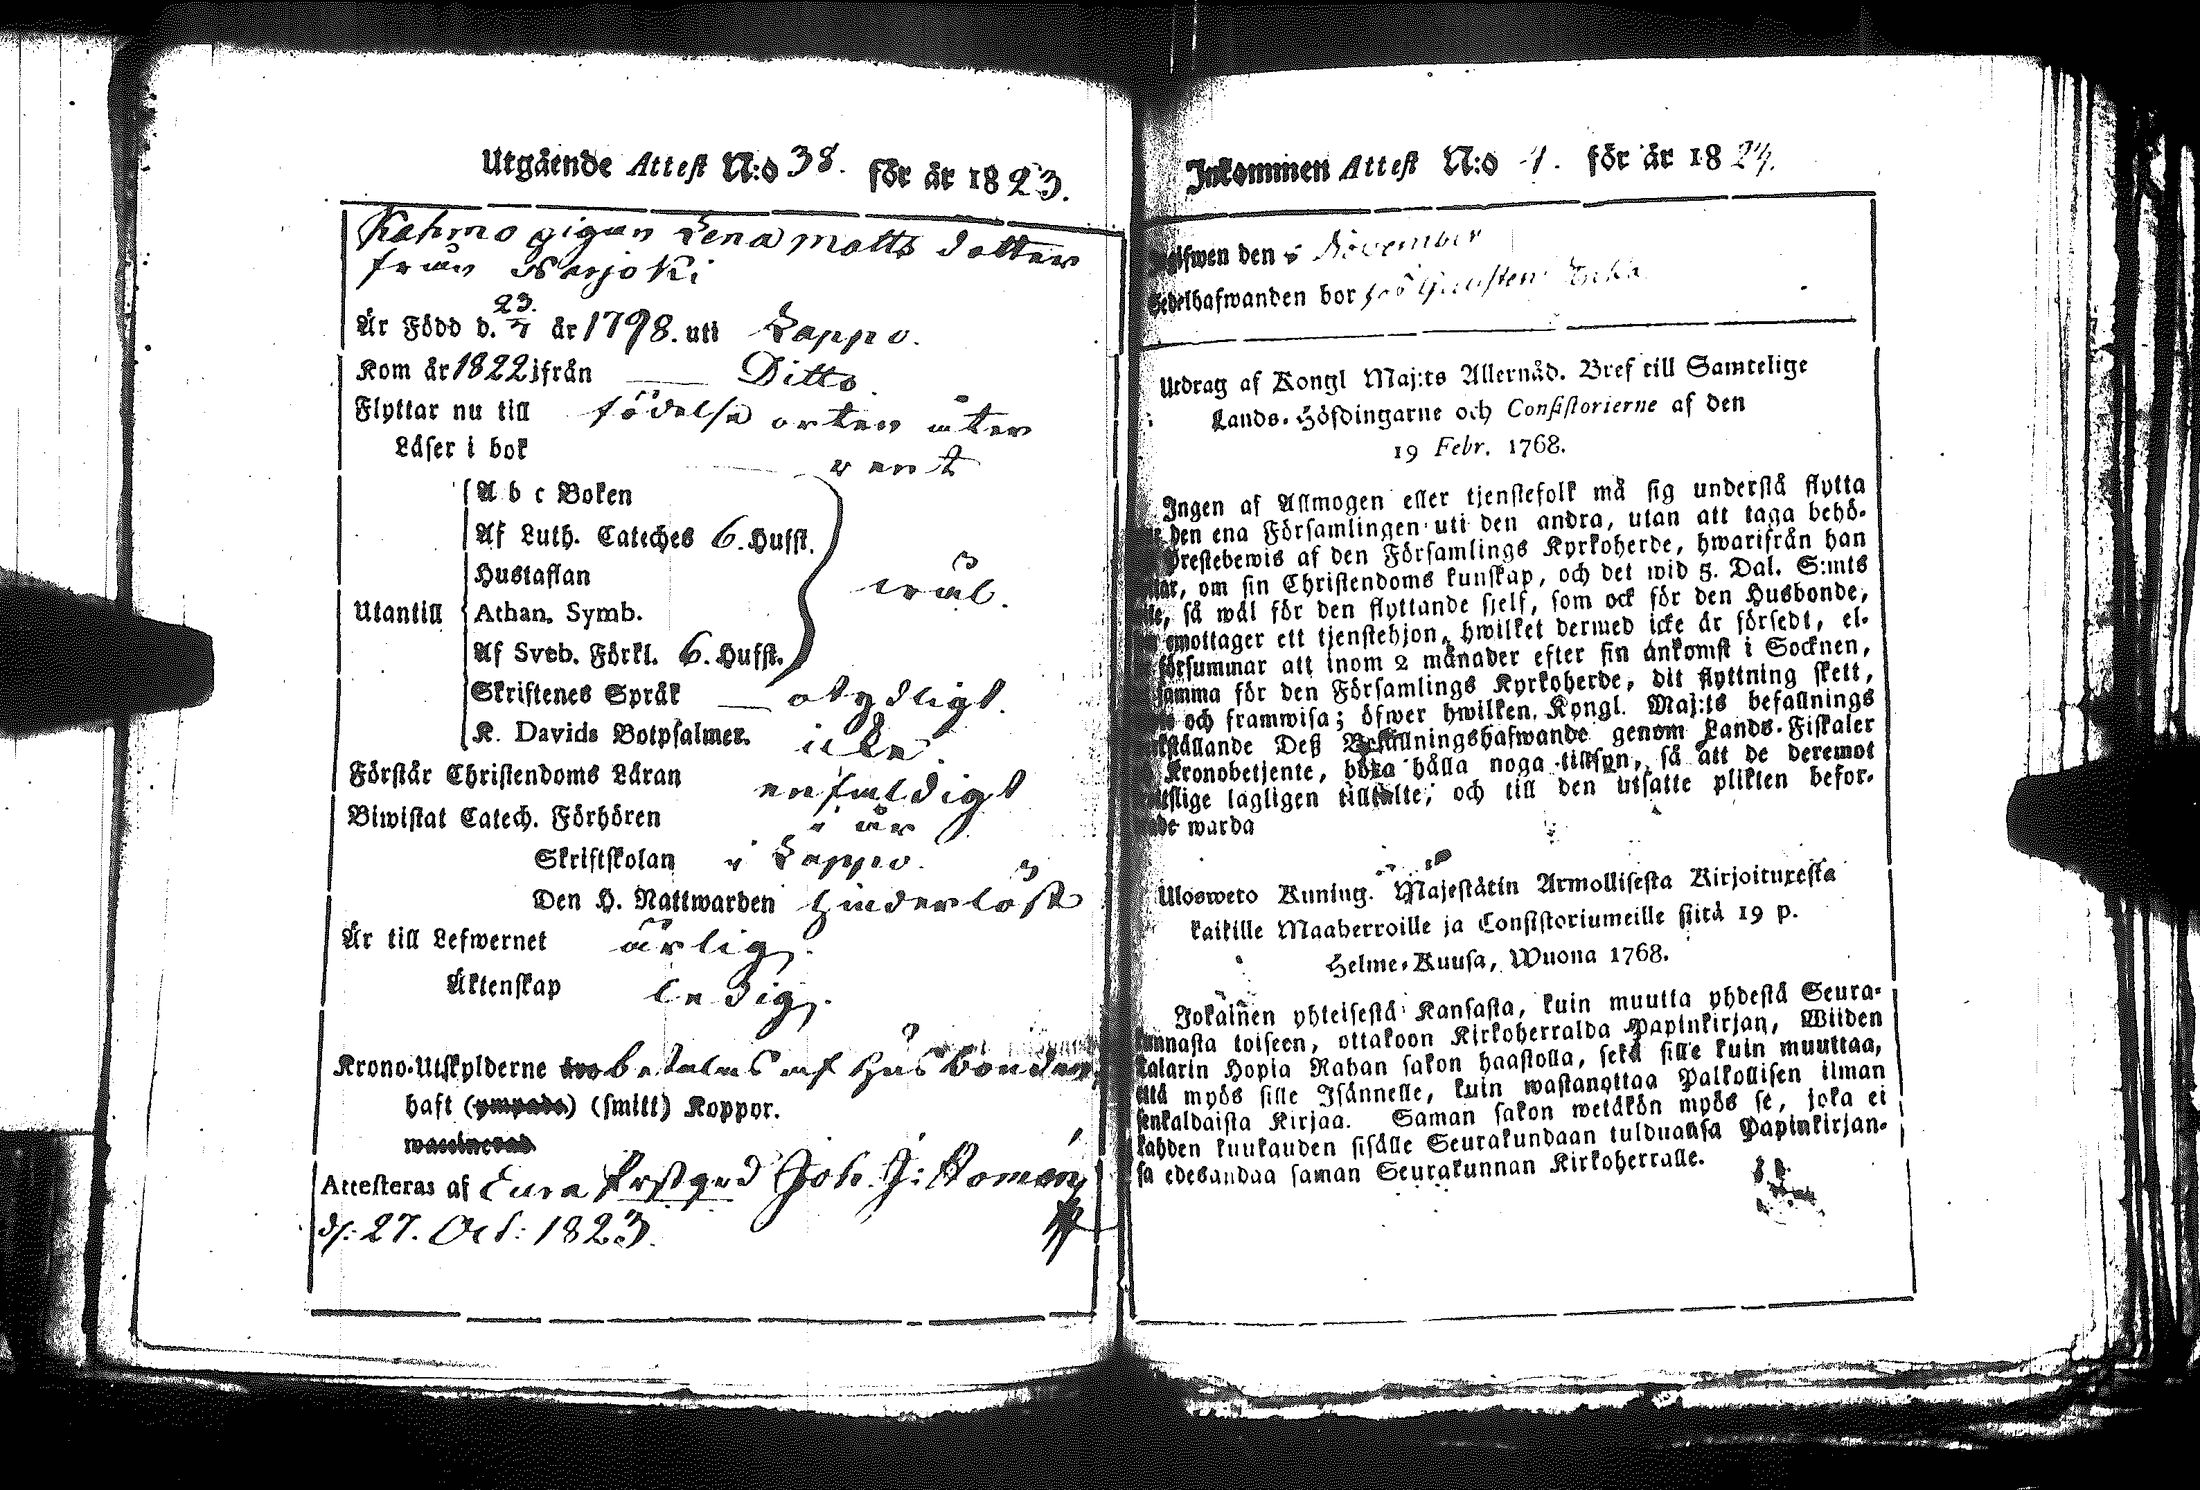 Utgående Attest N:o 38. för år 1823.
Kahmo pigan Lena Matts dotter
från Norjoki
Är Född d. 23/7 år 1798. uti Lappo.
Kom år 1822 ifrån Ditto
Flyttar nu till födelse orten åter
Läser i bok rent
A b c Boken
Af Luth. Cateches 6. Hufst.
Hustaflan wäl.
Utantill Athan. Symb.
Af Sveb. Förkl. 6. Hufst.
Skriftenes Språk otydligt.
K. Davids Botpsalmer. icke
Förstår Christendoms Läran enfaldigt
Biwistat Catech. Förhören i år
Skriftskolan i Lappo.
Den H. Nattwarden hinderlöst
Är till Lefwernet ärlig.
Äktenskap ledig.
Krono-Utskylderne betalas af Husbonden,
haft (ympade) (smitt) Koppor.
waccinerad
Attesteras af Eura Prstgrd Joh. J:
d: 27. Oct: 1823.
Inkommen Attest N:o 1. för år 1824.
den 5 November
bor
Utdrag af Kongl Maj:ts Allernåd. Bref till Samtelige
Lands-Höfdingarne och Consistorierne af den
19 Febr. 1768.
Ingen af Allmogen eller tjenstefolk må sig understå flytta
den ena Församlingen uti den andra, utan att taga behö-
Prestebewis af den Församlings Kyrkoherde, hwarifrån han
om sin Christendoms kunskap, och det wid 5. Dal. S:mts
så wäl för den flyttande sjelf, som ock för den Husbonde,
emottager ett tjenstehjon, hwilket dermed icke är försedt, el-
försummar att inom 2 månader efter sin ankomst i Socknen,
samma för den Församlings Kyrkoherde, dit flyttning skett,
och framwisa; öfwer hwilken, Kongl. Maj:ts befallnings
werkställande Deß Befallningshafwande genom Lands-Fiskaler
Kronobetjente, böra hålla noga tillsyn, så att de deremot
lagligen tilltalte, och till den utsatte plikten befor-
warda
Ulosweto Kuning. Majestätin Armollisesta Kirjoituxesta
kaikille Maaherroille ja Consistoriumeille siitä 19 p.
Helme-Kuusa, Wuona 1768.
Jokainen yhteisestä Kansasta, kuin muutta yhdestä Seura-
kunnasta toiseen, ottakoon Kirkoherralda Papinkirjan, Wiiden
talarin Hopia Rahan sakon haastolla, sekä sille kuin muuttaa,
että myös sille Isännelle, kuin wastanottaa Palkollisen ilman
senkaldaista Kirjaa. Saman sakon wetäkön myös se, joka ei
kahden kuukauden sisälle Seurakundaan tulduansa Papinkirjan-
sa edesandaa saman Seurakunnan Kirkoherralle.